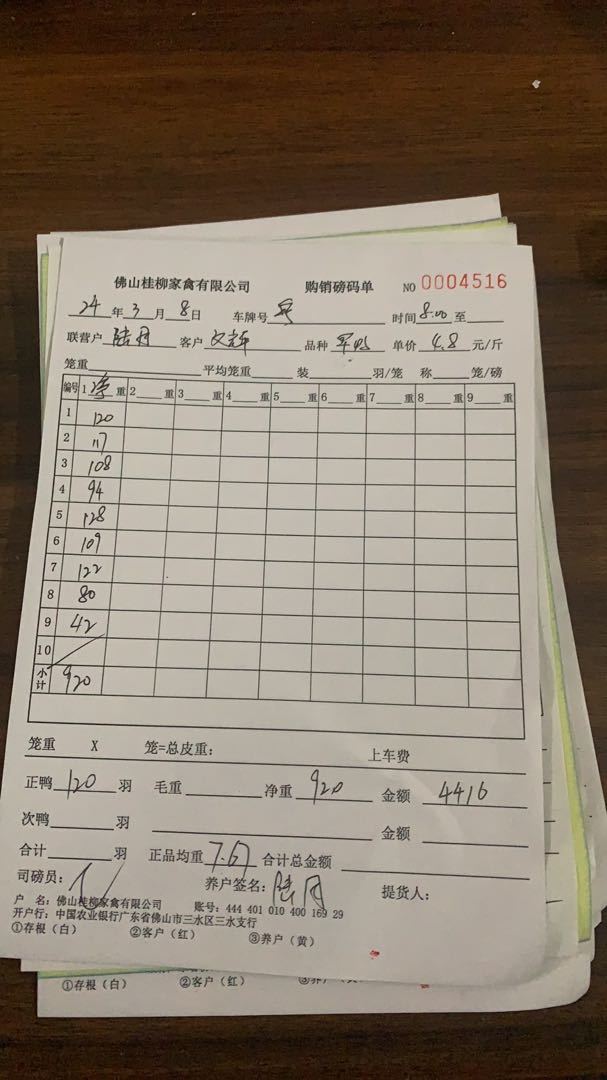 佛山桂柳家禽有限公司 购销磅码单 NO 0004516
24年3月8日 车牌号 时间8:00至
联营户 陆月 客户 文辉 品种 单价 4.8 元/斤
笼重 平均笼重 装 羽/笼 称 笼/磅
编号 1 净 重 2 重 3 重 4 重 5 重 6 重 7 重 8 重 9 重
1 120
2 117
3 108
4 94
5 128
6 109
7 122
8 80
9 42
10
小计 920
笼重 X 笼=总皮重: 上车费
正鸭 120 羽 毛重 净重 920 金额 4416
次鸭 羽 金额
合计 羽 正品均重 7.67 合计总金额
司磅员: 养户签名: 陆月 提货人:
户 名: 佛山桂柳家禽有限公司 账号: 444 401 010 400 169 29
开户行: 中国农业银行广东省佛山市三水区三水支行
①存根（白） ②客户（红） ③养户（黄）
①存根（白） ②客户（红）